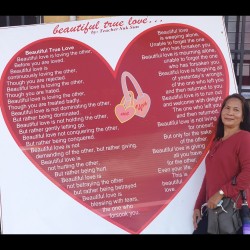 beautiful true love...
by: Teacher Nub Sum
Beautiful True Love
Beautiful love is loving the other,
Before you are loved.
Beautiful love is
continuously loving the other,
Though you are rejected.
Beautiful love is loving the other,
Though you are forsaken.
Beautiful love is loving the other,
Though you are treated badly.
Beautiful love is not dominating the other,
But rather being dominated.
Beautiful love is not hurting the other,
But rather gently letting go.
Beautiful love is not conquering the other,
But rather being conquered.
Beautiful love is not
demanding of the other, but rather giving.
Beautiful love is
not hurting the other,
But rather being hurt
Beautiful love is
not betraying the other
but rather being betrayed.
Beautiful love is
brewing with tears,
the one who
forsook you.
Beautiful love
is weeping alone,
Unable to forget the one
who has forsaken you.
Beautiful love is weeping alone,
Unable to forget the one
who has forsaken you.
Beautiful love is forgiving all
of yesterday's wrongs,
of the one who left you
and then returned to you
Beautiful love is to run out
and welcome with delight,
The one who left you
and then returned
Beautiful love is
for your
But only for the sake
of the other.
Beautiful love is giving
all you have
for the other,
Even your life.
This is